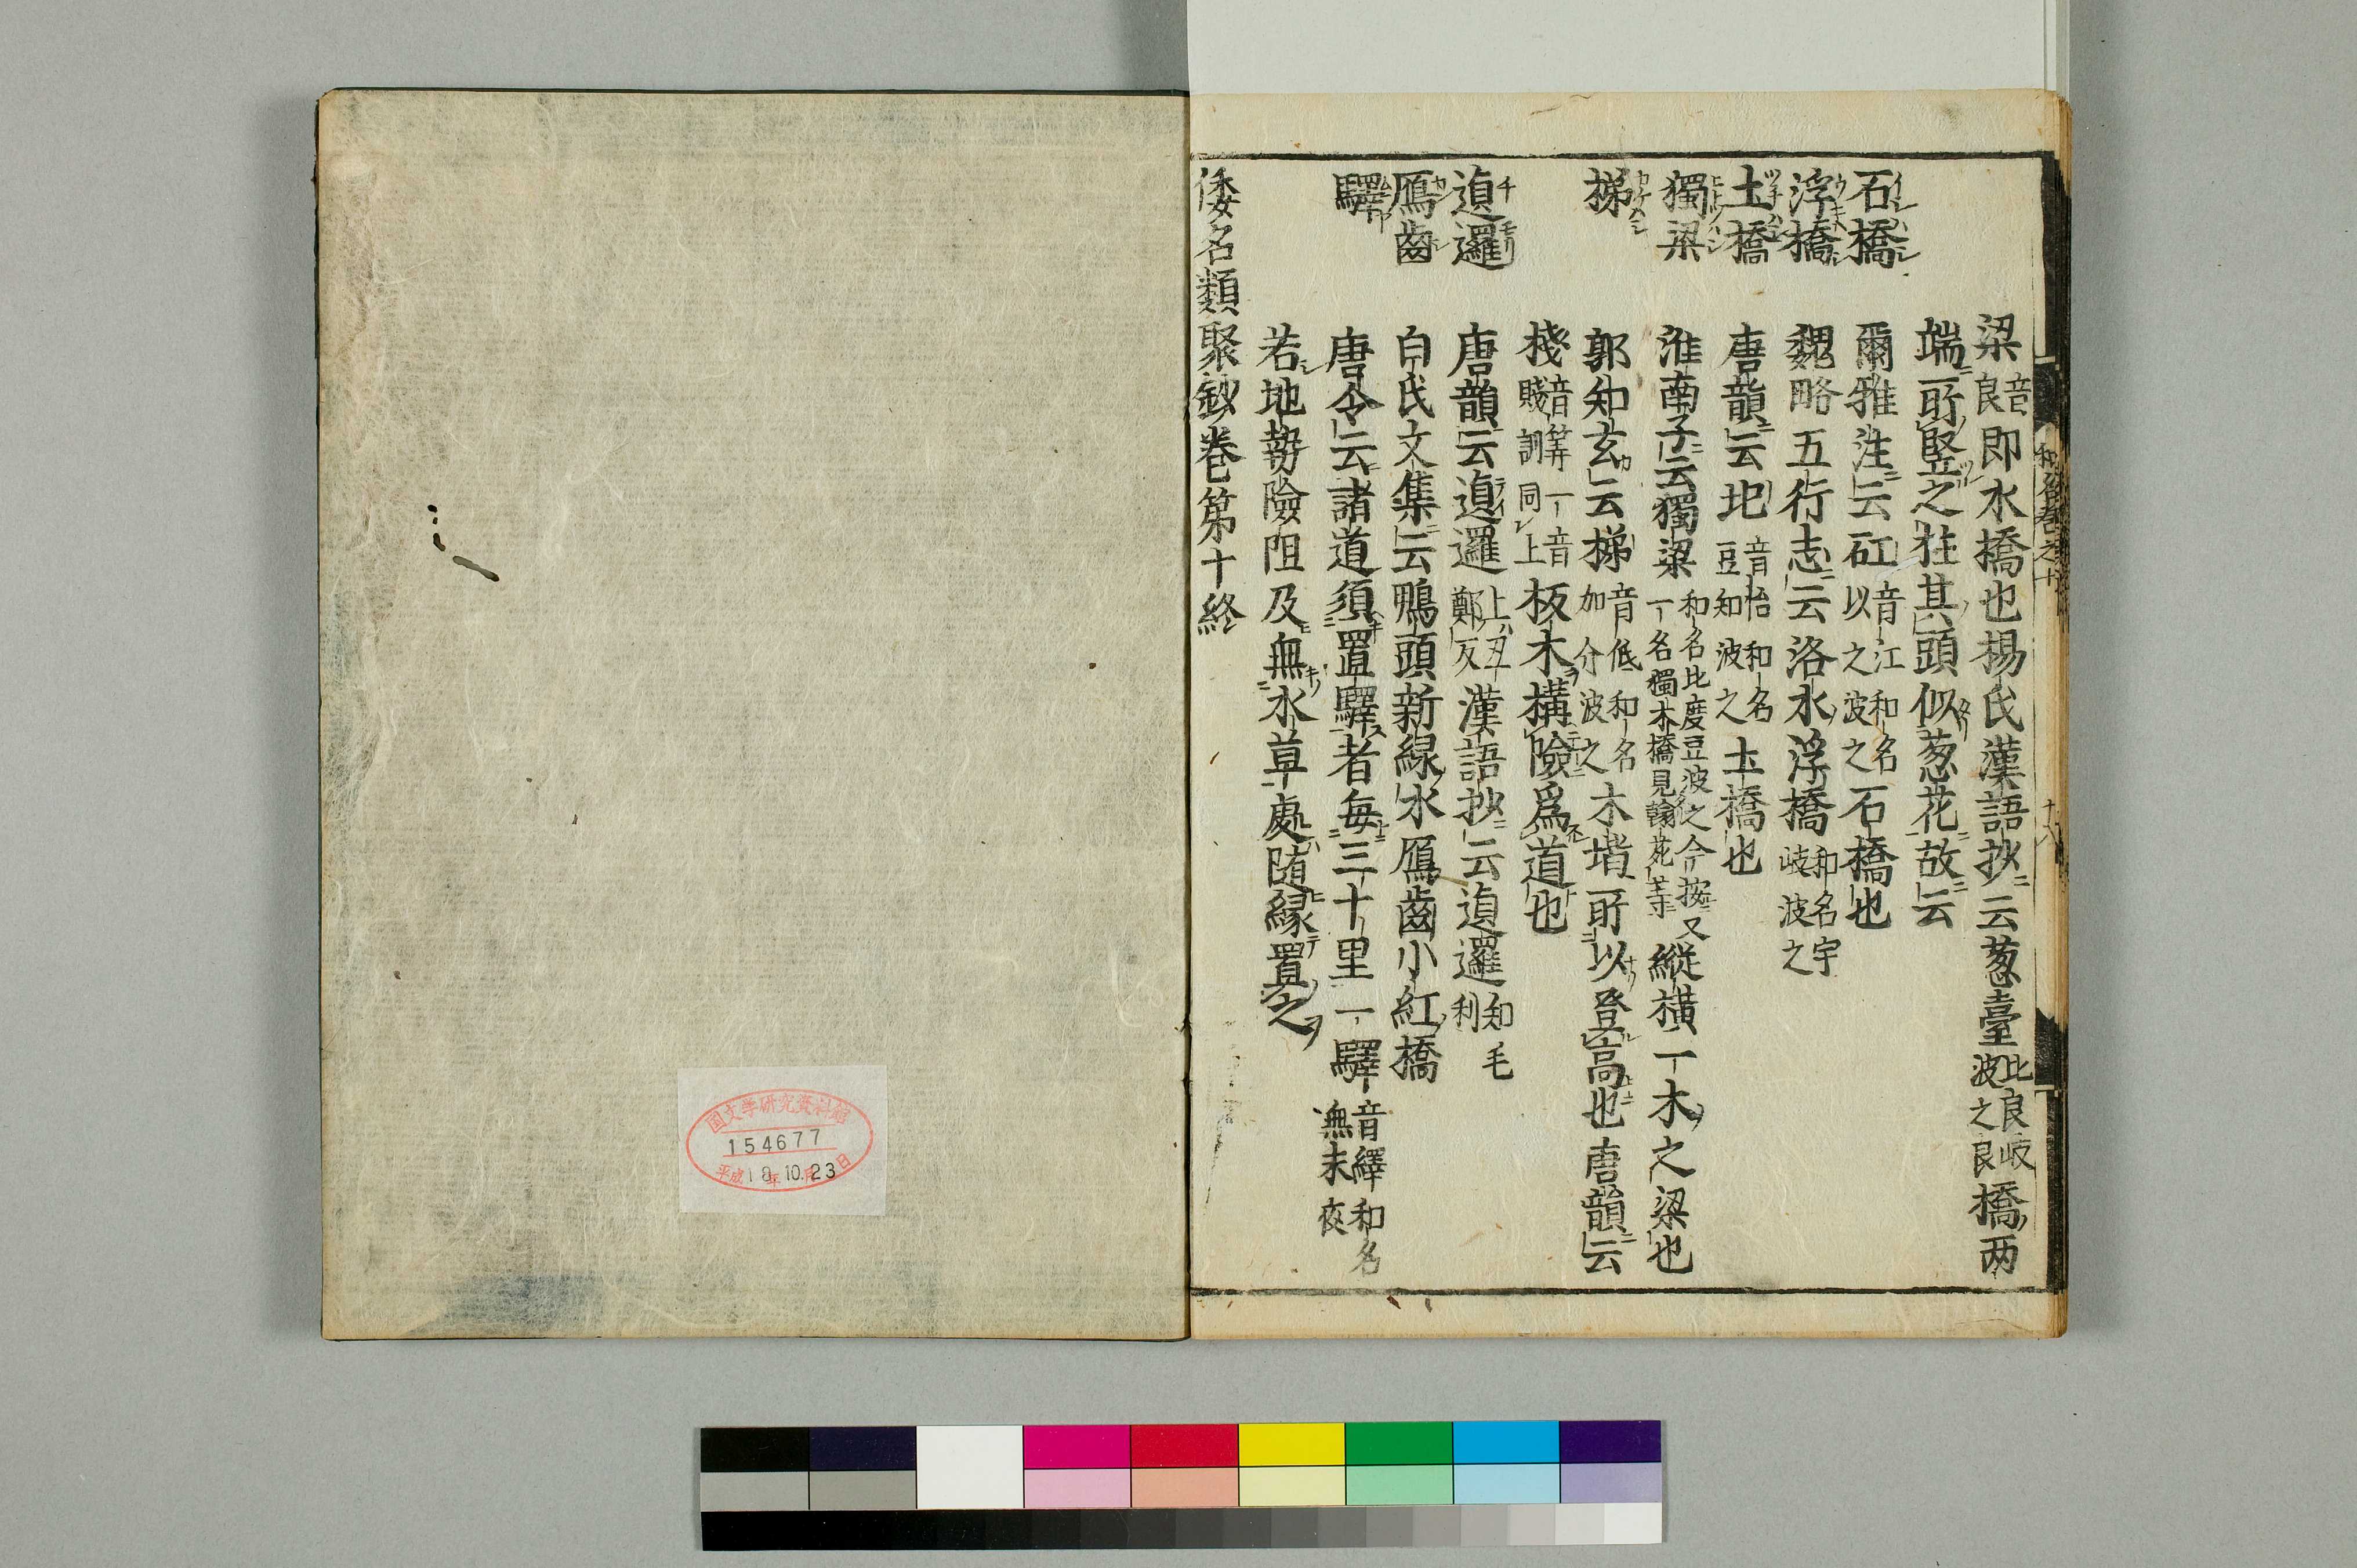 梁音良即水橋也楊氏漢語抄云葱臺比良岐波之良橋两
端所竪之柱其頭似葱花故云
石橋 爾雅注云矼音江和名以之波之石橋也
浮橋 魏略五行志云洛水浮橋和名宇岐波之
土橋 唐韻云圯音怡和名豆知波之土橋也
獨梁 淮南子云獨梁和名比度豆波之今按又一名獨木橋見翰苑等縦横一木之梁也
梯 郭知玄云梯音低和名加介波之木堦所以登高也唐韻云
棧音筭一音賤訓同上板木構險爲道也
邏 唐韻云邏上丑鄭反漢語抄云邏知毛利
鴈齒 白氏文集云鴨頭新緑水鴈齒小紅橋
驛 唐令云諸道須置驛者毎三十里一驛音繹和名無末夜
若地勢險阻及無水草處随縁置之
倭名類聚鈔卷第十終
和名卷之十
十八
国文学研究資料館
154677
平成18年10月23日